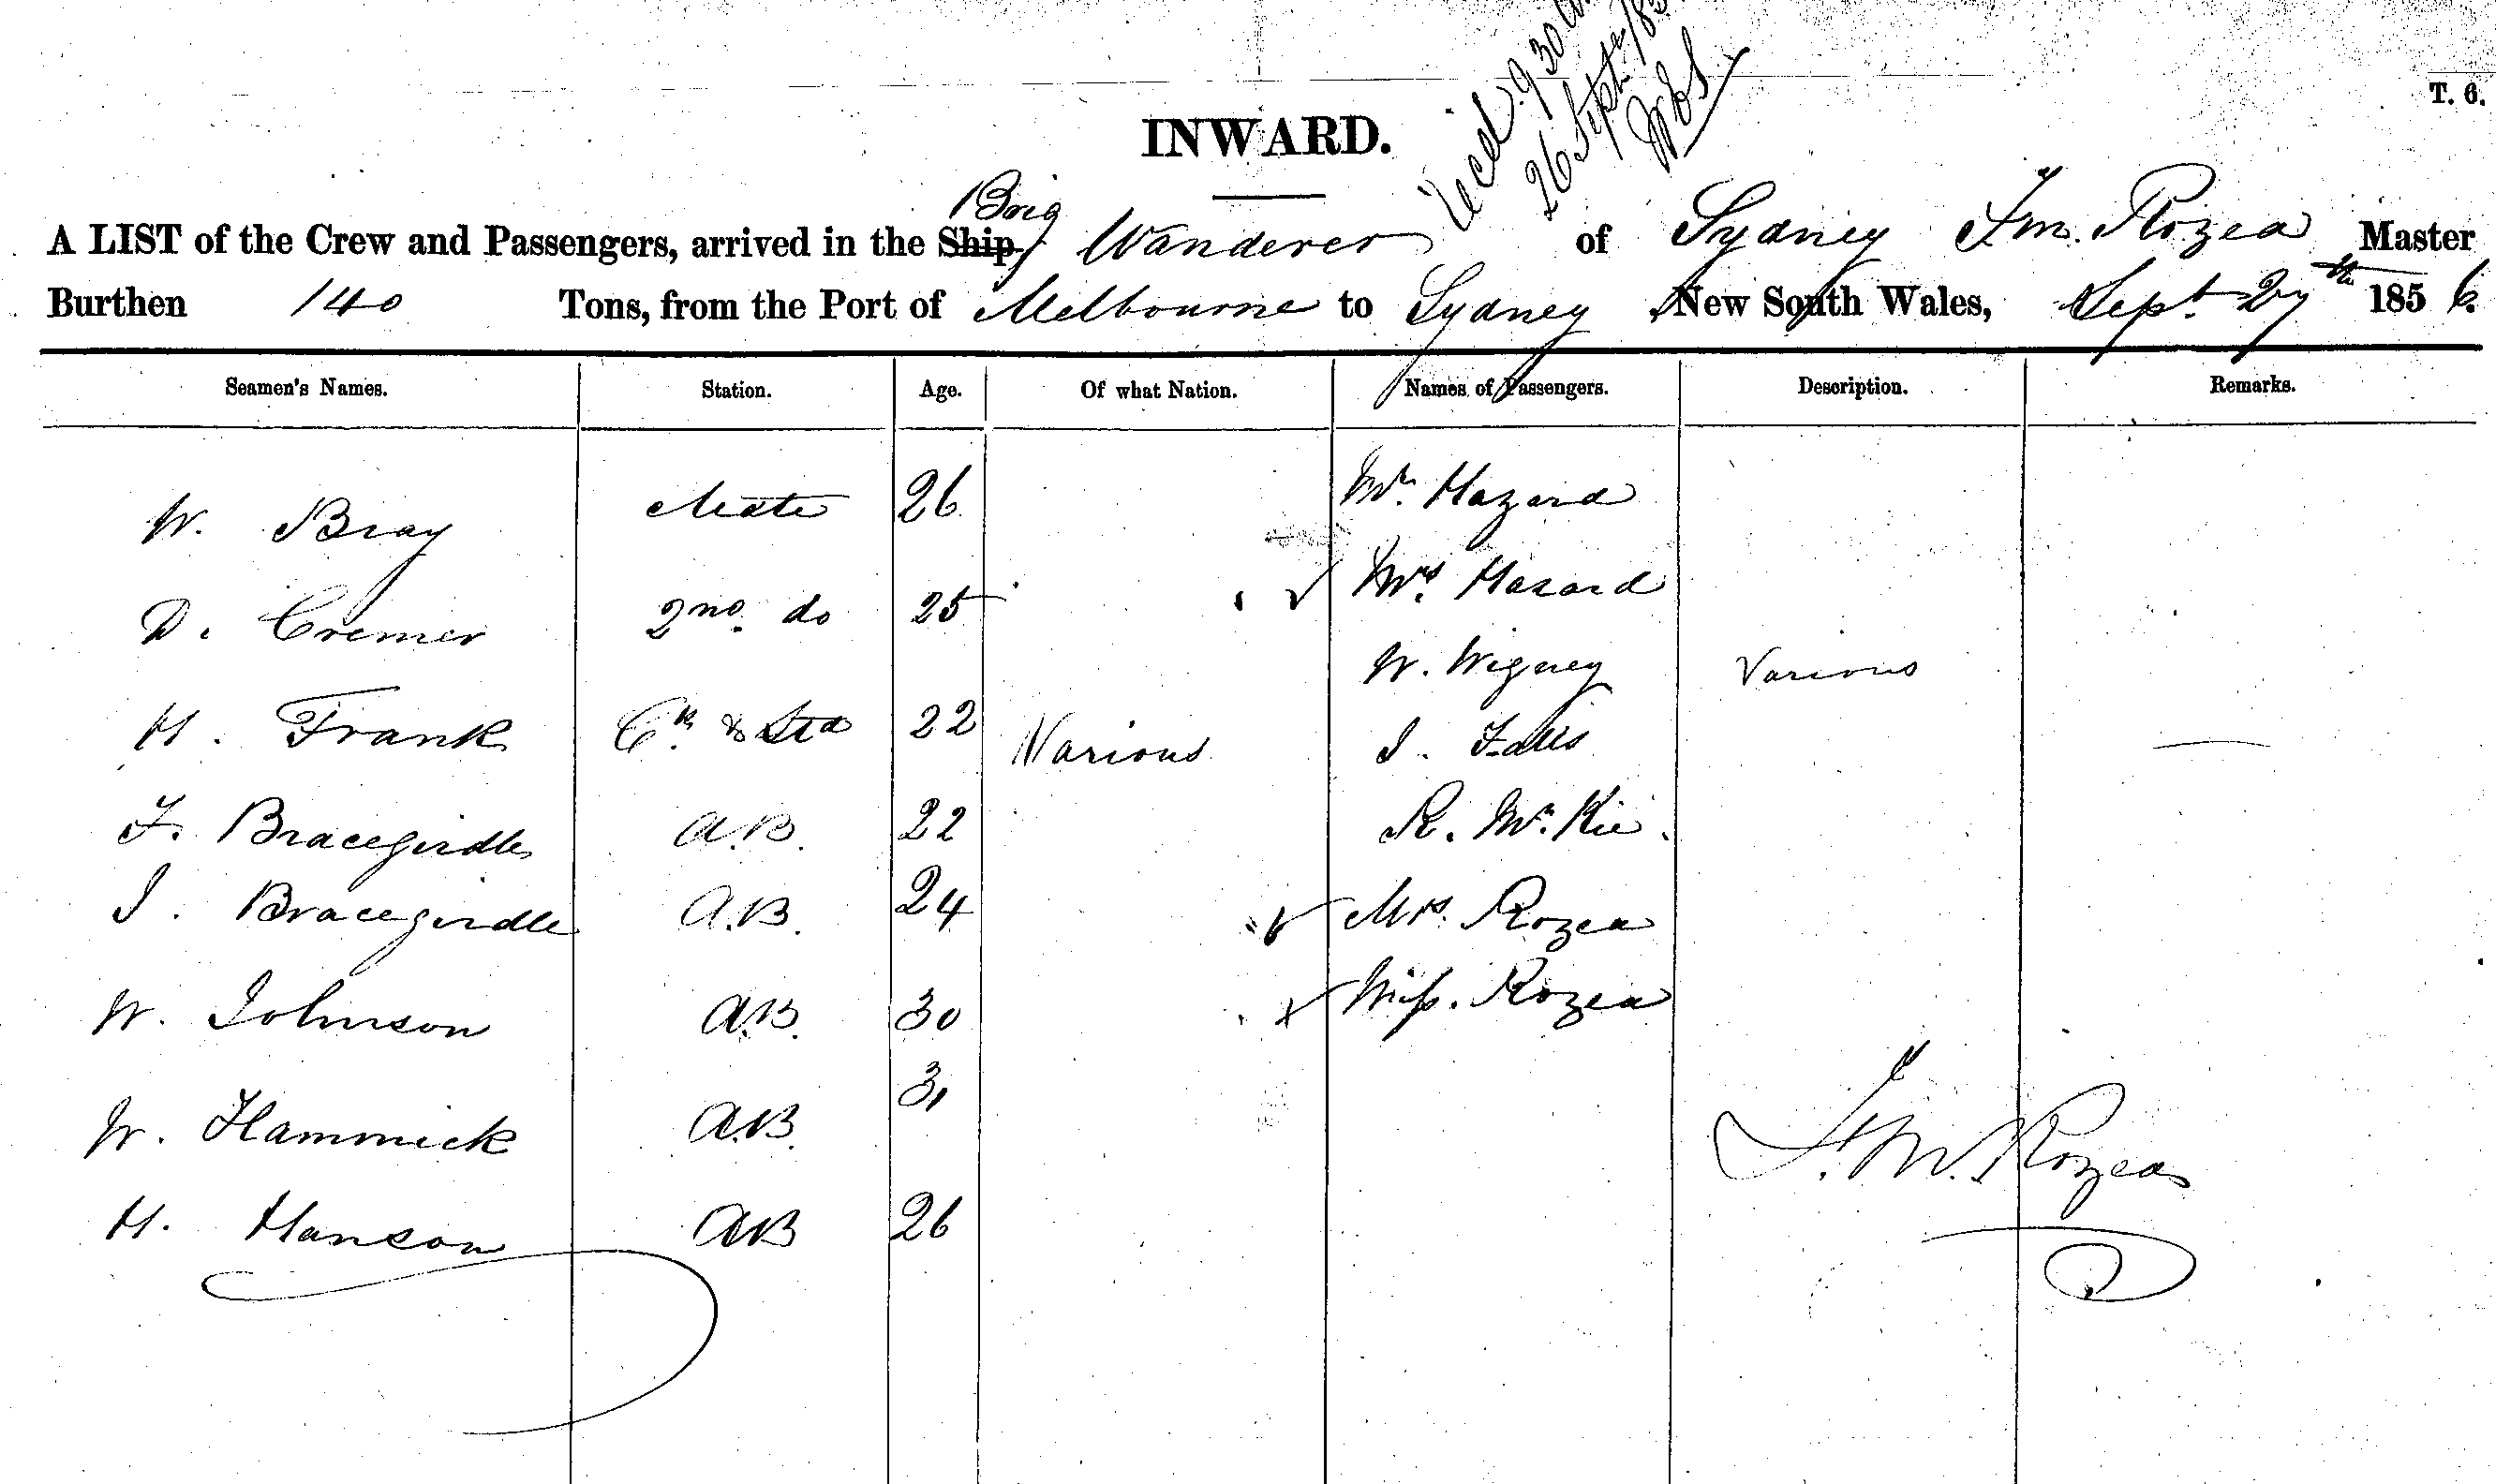 T. 6.
26 Sept. 185
INWARD.
A LIST of the Crew and Passengers, arrived in the Ship Brig Wanderer of Sydney F. M. Rozea Master
Burthen 140 Tons, from the Port of Melbourne to Sydney New South Wales, Sept. 27th 1856
Seamen's Names. Station. Age. Of what Nation. Names of Passengers. Description. Remarks.
W. Bray Mate 26 Mr. Hazard
D. Cremer 2nd. do 25 Mrs. Hazard
W. Wigney Various
H. Frank Ck. & Std 22 Various
F. Bracegirdle A.B. 22 R. Mc. Kie.
I. Bracegirdle A.B. 24 Mrs. Rozea
W. Johnson A.B. 30 Miss. Rozea
W. Hammick A.B. 31
F. M. Rozea
H. Hanson AB 26